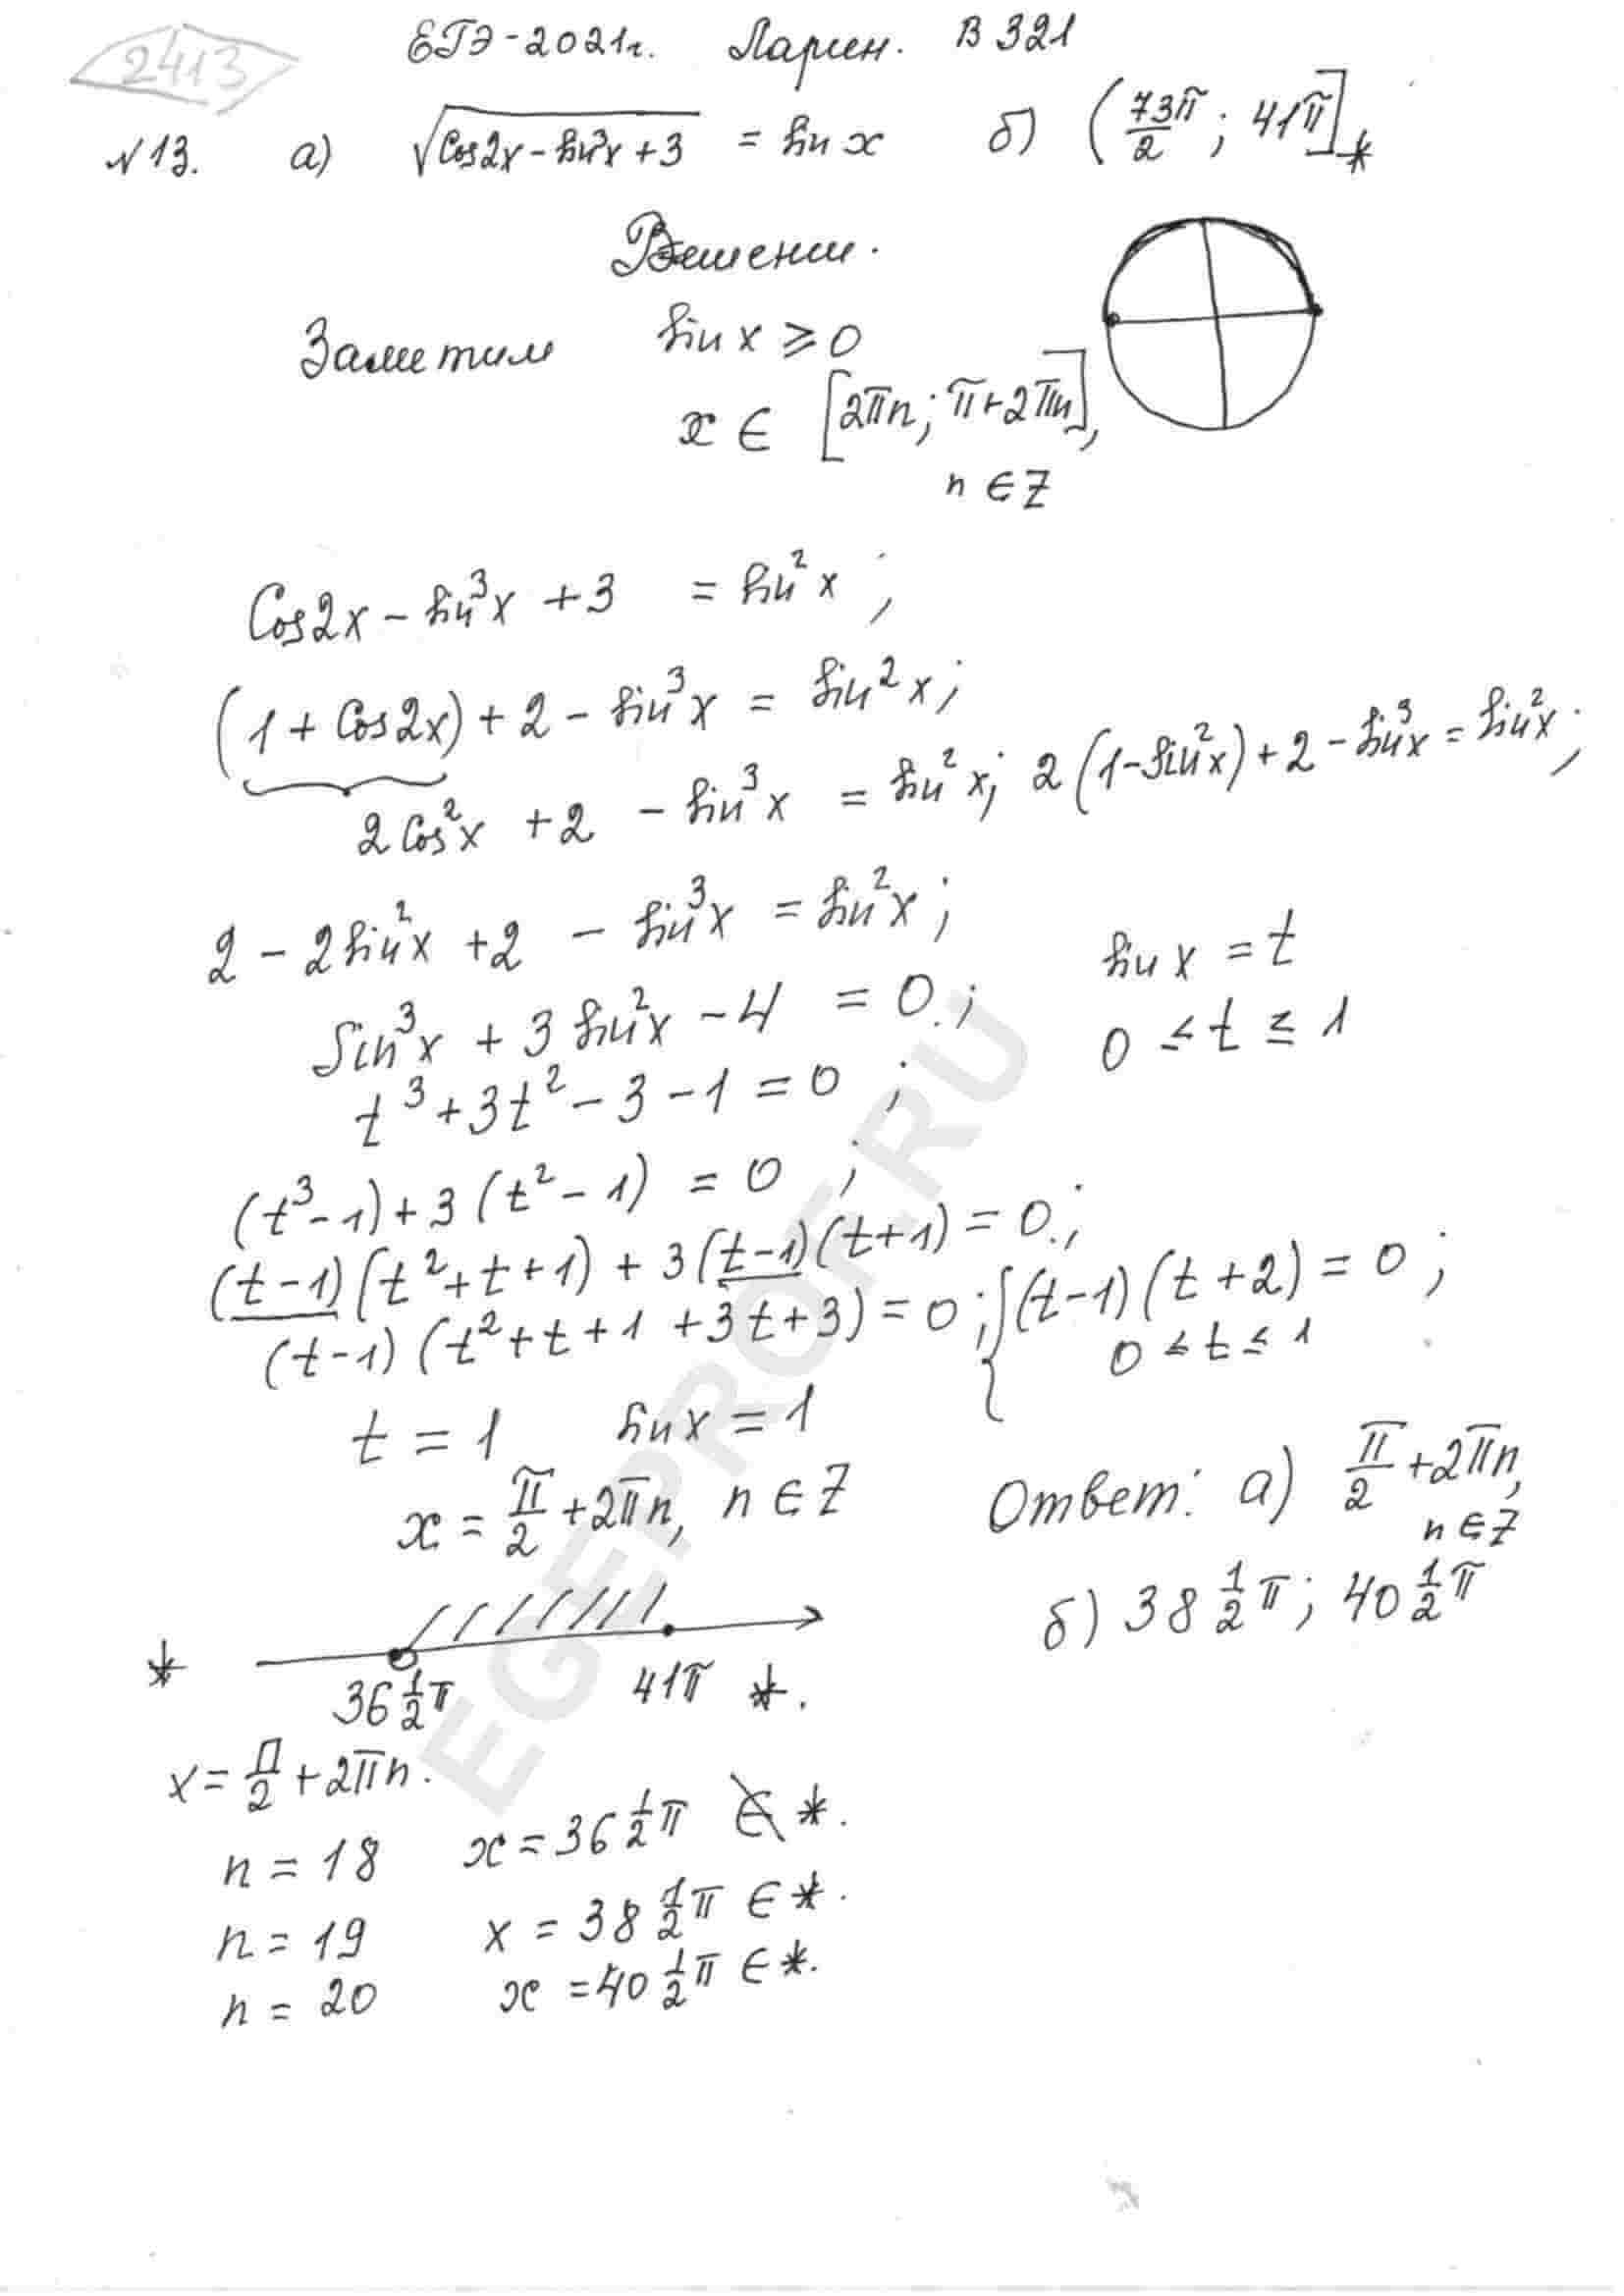 2413
ЕГЭ-2021г. Ларин. В 321
№13. а) √(cos2x - sin³x + 3) = sin x б) (73π/2; 41π]*
Решение.
Заметим sin x ≥ 0
x ∈ [2πn; π+2πn],
n ∈ Z
Cos2x - sin³x + 3 = sin²x;
(1 + Cos2x) + 2 - sin³x = sin²x;
2cos²x + 2 - sin³x = sin²x; 2(1-sin²x) + 2 - sin³x = sin²x;
2 - 2sin²x + 2 - sin³x = sin²x;
sin x = t
Sin³x + 3 sin²x - 4 = 0;
0 ≤ t ≤ 1
t³ + 3t² - 3 - 1 = 0;
(t³-1) + 3(t²-1) = 0;
(t-1)(t²+t+1) + 3(t-1)(t+1) = 0;
(t-1)(t²+t+1+3t+3) = 0; { (t-1)(t+2) = 0;
0 ≤ t ≤ 1
t = 1 sin x = 1
x = π/2 + 2πn, n ∈ Z
Ответ: а) π/2 + 2πn,
n ∈ Z
б) 38 1/2 π; 40 1/2 π
*
36 1/2 π 41π *.
x = π/2 + 2πn.
n = 18 x = 36 1/2 π ∉ *.
n = 19 x = 38 1/2 π ∈ *.
n = 20 x = 40 1/2 π ∈ *.
EGEPROF.RU